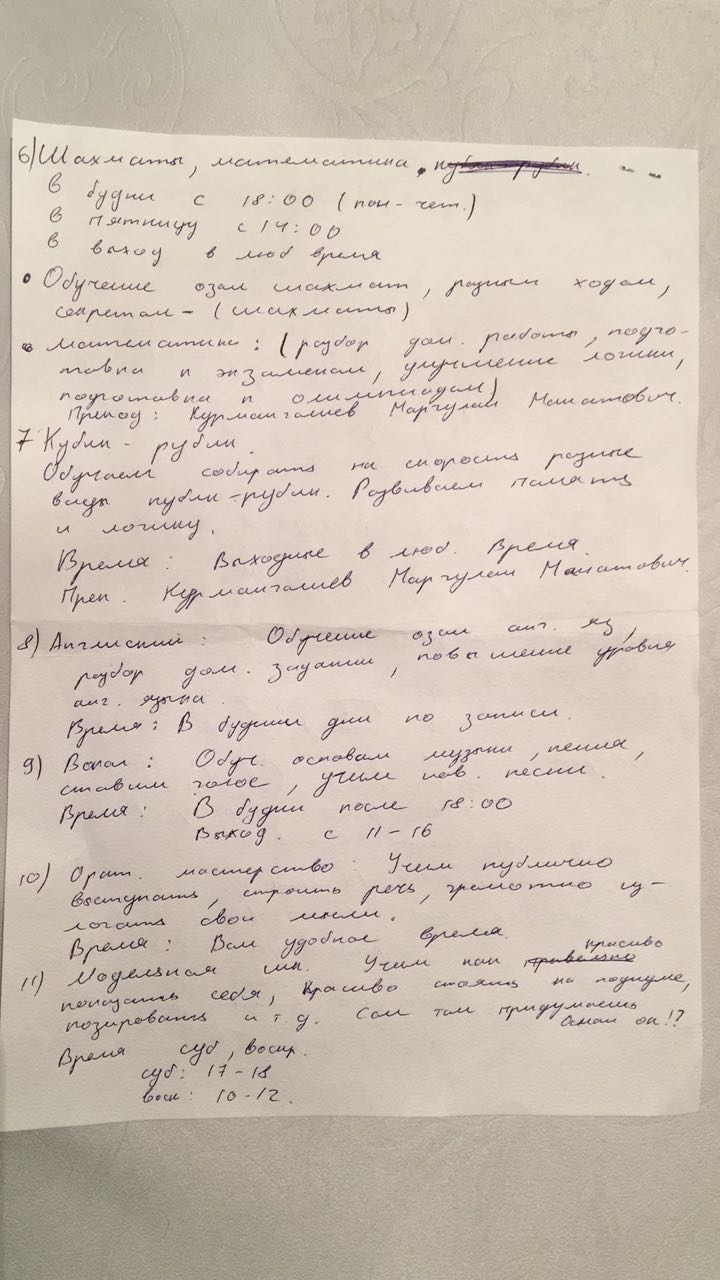 6) Шахматы, математика, кубик рубик.
В будни с 18:00 (пон-чет.)
В пятницу с 14:00
В выход в люб время
• Обучение озам шахмат, разным ходам,
секретам - (шахматы)
• математика: (разбор дом. работы, подго-
товка к экзаменам, улучшение логики,
подготовка к олимпиадам)
Препод: Курмангалиев Маргулан Манатович.
7 Кубик - рубик.
Обучаем собирать на скорость разные
виды кубик-рубик. Развиваем память
и логику.
Время: Выходные в люб. Время.
Преп. Курмангалиев Маргулан Манатович.
8) Английский: Обучение озам анг. яз,
разбор дом. задании, повышение уровня
анг. языка.
Время: В будним дни по записи.
9) Вокал: Обуч. основам музыки, пения,
ставим голос, учим нов. песни.
Время: В будни после 18:00
Выход. с 11-16
10) Орат. мастерство: Учим публично
выступать, строить речь, грамотно из-
логать свои мысли.
Время: Вам удобное время.
11) Модельная шк. Учим как правельно красиво
показать себя, красиво стоять на подиуме,
позировать и т д. Сам там придумаешь
Оснан ок!?
Время суб, воскр.
суб: 17-18
воск: 10-12.